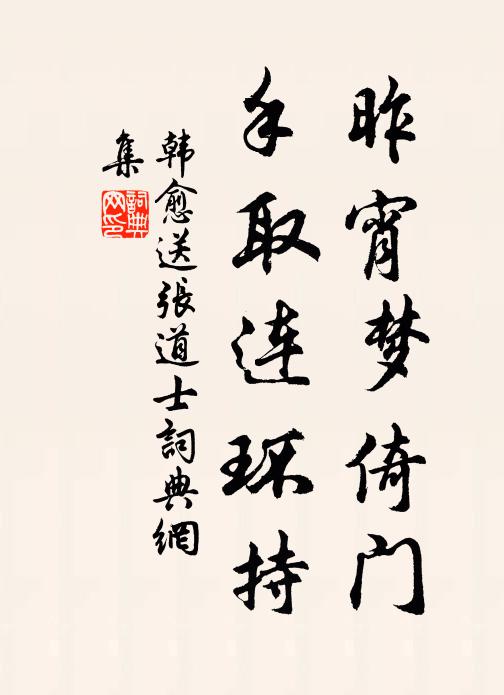 昨宵梦倚门
手取连环持
韩愈送張道士詞典網
集
詞典网印